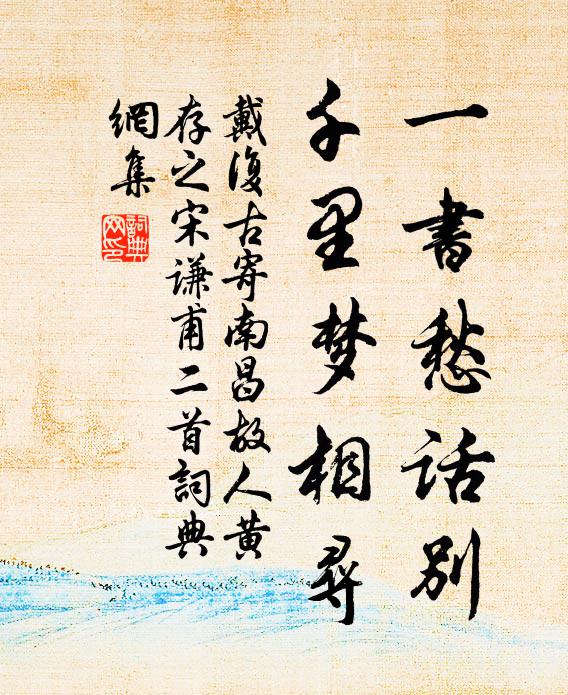 一書愁話別
千里梦相尋
戴復古寄南昌故人黄
存之宋謙甫二首詞典
網集
詞典
网印